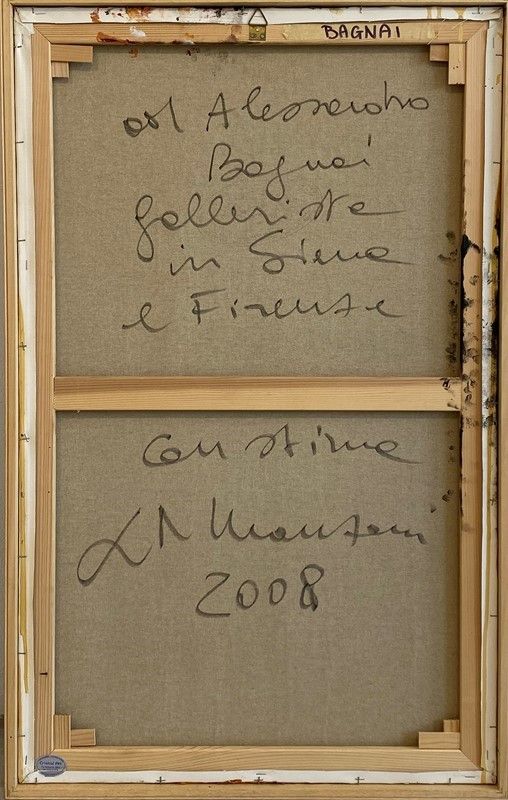 BAGNAI
ad Alessandro
Bagnai
gallerista
in Siena
e Firenze
con stima
2008